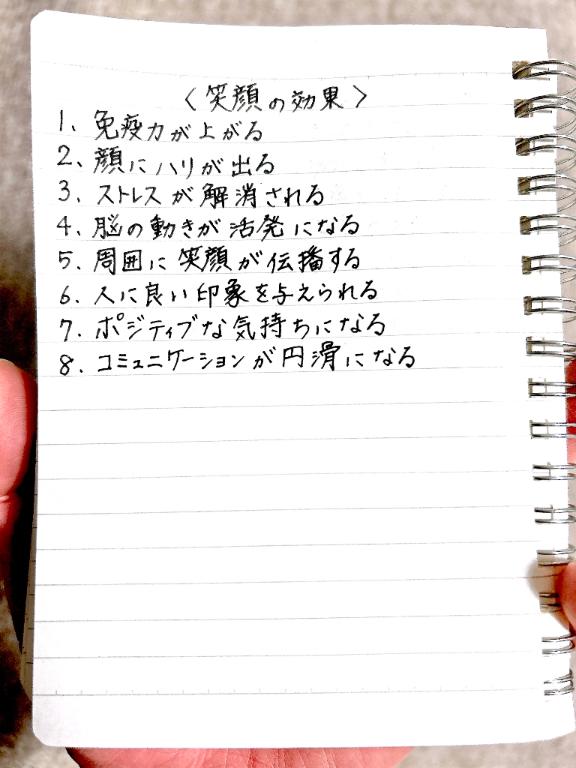 〈笑顔の効果〉
1、免疫力が上がる
2、顔にハリが出る
3、ストレスが解消される
4、脳の動きが活発になる
5、周囲に笑顔が伝播する
6、人に良い印象を与えられる
7、ポジティブな気持ちになる
8、コミュニケーションが円滑になる